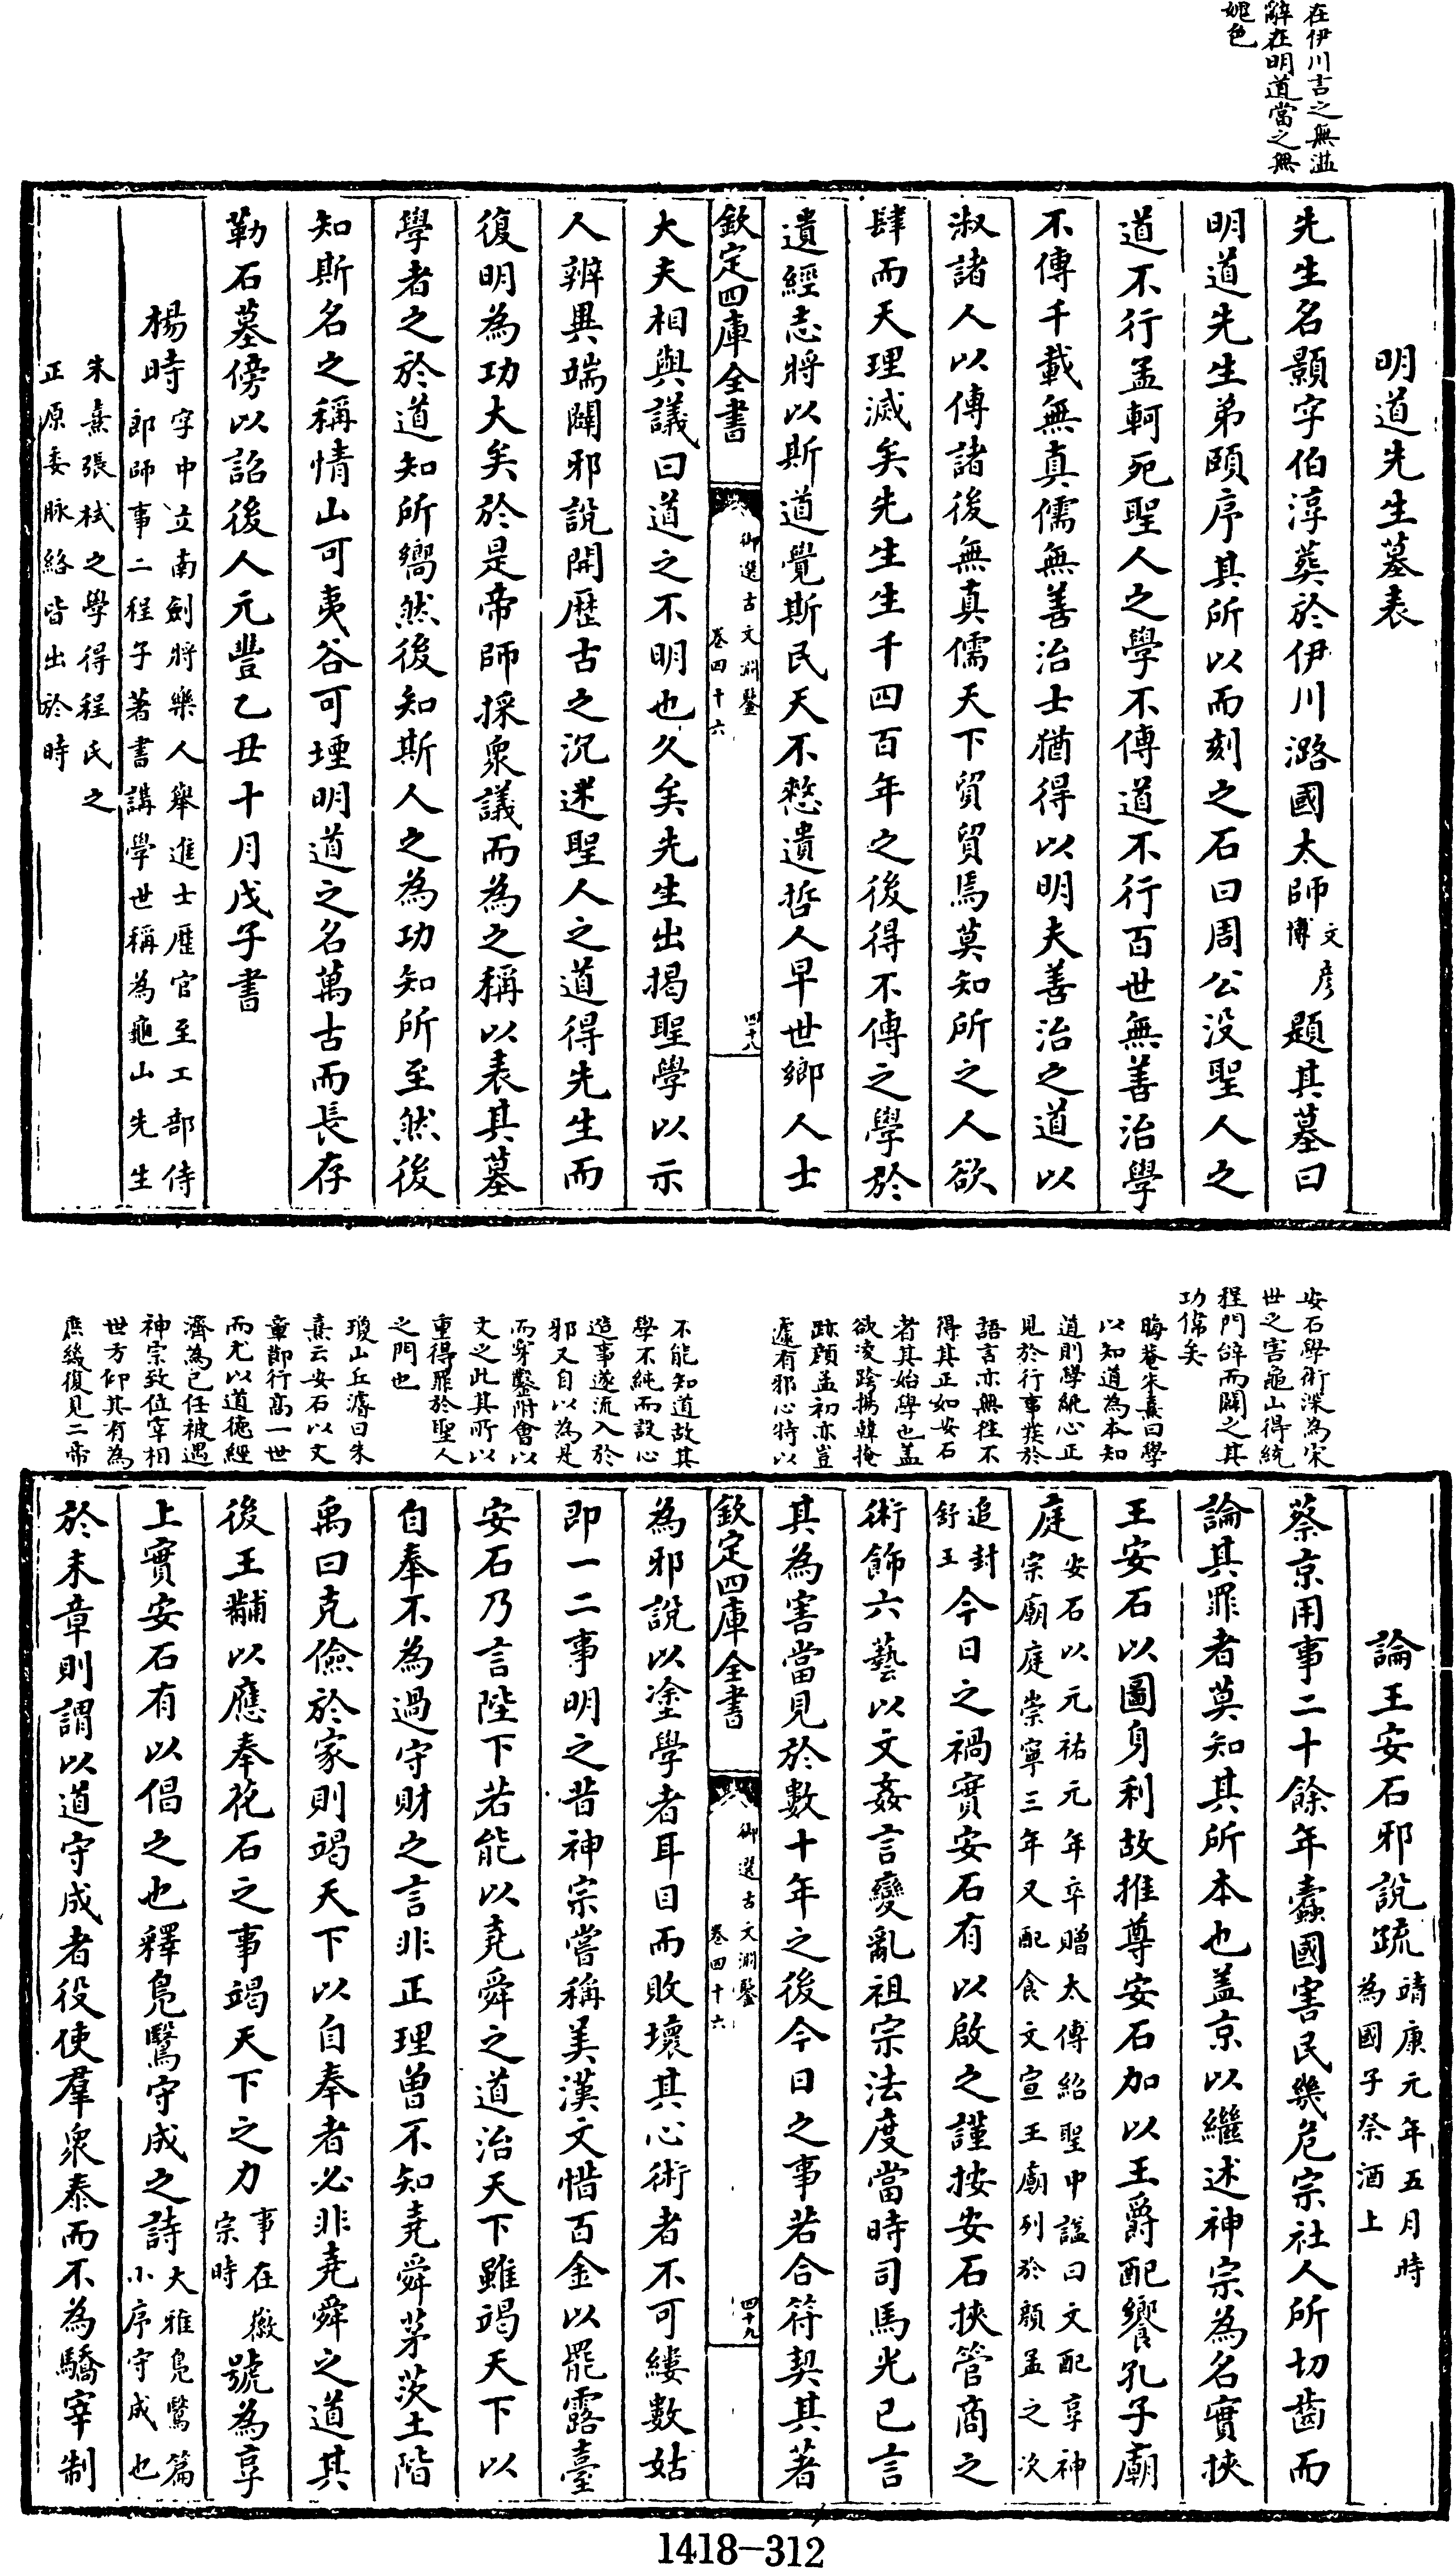 在伊川言之無溢
辭在明道當之無
媿色
明道先生墓表
先生名顥字伯淳葬於伊川潞國太師文彦博題其墓曰
明道先生弟頤序其所以而刻之石曰周公沒聖人之
道不行孟軻死聖人之學不傳道不行百世無善治學
不傳千載無真儒無善治士猶得以明夫善治之道以
淑諸人以傳諸後無真儒天下貿貿焉莫知所之人欲
肆而天理滅矣先生生千四百年之後得不傳之學於
遺經志將以斯道覺斯民天不憖遺哲人早世鄉人士
欽定四庫全書
御選古文淵鑒
卷四十六
四十八
大夫相與議曰道之不明也久矣先生出揭聖學以示
人辨異端闢邪說開歴古之沉迷聖人之道得先生而
復明為功大矣於是帝師採衆議而為之稱以表其墓
學者之於道知所嚮然後知斯人之為功知所至然後
知斯名之稱情山可夷谷可堙明道之名萬古而長存
勒石墓傍以詔後人元豐乙丑十月戊子書
楊時字中立南劍將樂人舉進士歴官至工部侍
郎師事二程子著書講學世稱為龜山先生
朱熹張栻之學得程氏之
正原委脈絡皆出於時
安石學術深為宋
世之害龜山得統
程門辭而闢之其
功偉矣
晦菴朱熹曰學
以知道為本知
道則學純心正
見於行事發於
語言亦無徃不
得其正如安石
者其始學也盖
欲凌跨揚韓掩
跡顔孟初亦豈
遽有邪心特以
不能知道故其
學不純而設心
造事遂流入於
邪又自以為是
而穿鑿附會以
文之此其所以
重得罪於聖人
之門也
瓊山丘濬曰朱
熹云安石以文
章節行高一世
而尤以道德經
濟為己任被遇
神宗致位宰相
世方仰其有為
庶幾復見二帝
論王安石邪說疏靖康元年五月時
為國子祭酒上
蔡京用事二十餘年蠹國害民幾危宗社人所切齒而
論其罪者莫知其所本也盖京以繼述神宗為名實挾
王安石以圖身利故推尊安石加以王爵配饗孔子廟
庭安石以元祐元年卒贈太傅紹聖中諡曰文配享神
宗廟庭崇寧三年又配食文宣王廟列於顔孟之次
追封
舒王今日之禍實安石有以啟之謹按安石挾管商之
術飾六藝以文姦言變亂祖宗法度當時司馬光已言
其為害當見於數十年之後今日之事若合符契其著
欽定四庫全書
御選古文淵鑒
卷四十六
四十九
為邪說以塗學者耳目而敗壞其心術者不可縷數姑
即一二事明之昔神宗嘗稱美漢文惜百金以罷露臺
安石乃言陛下若能以堯舜之道治天下雖竭天下以
自奉不為過守財之言非正理曾不知堯舜茅茨土階
禹曰克儉於家則竭天下以自奉者必非堯舜之道其
後王黼以應奉花石之事竭天下之力事在徽宗時號為享
上實安石有以倡之也釋鳧鷖守成之詩大雅鳧鷖篇
小序守成也
於末章則謂以道守成者役使羣衆泰而不為驕宰制
1418-312